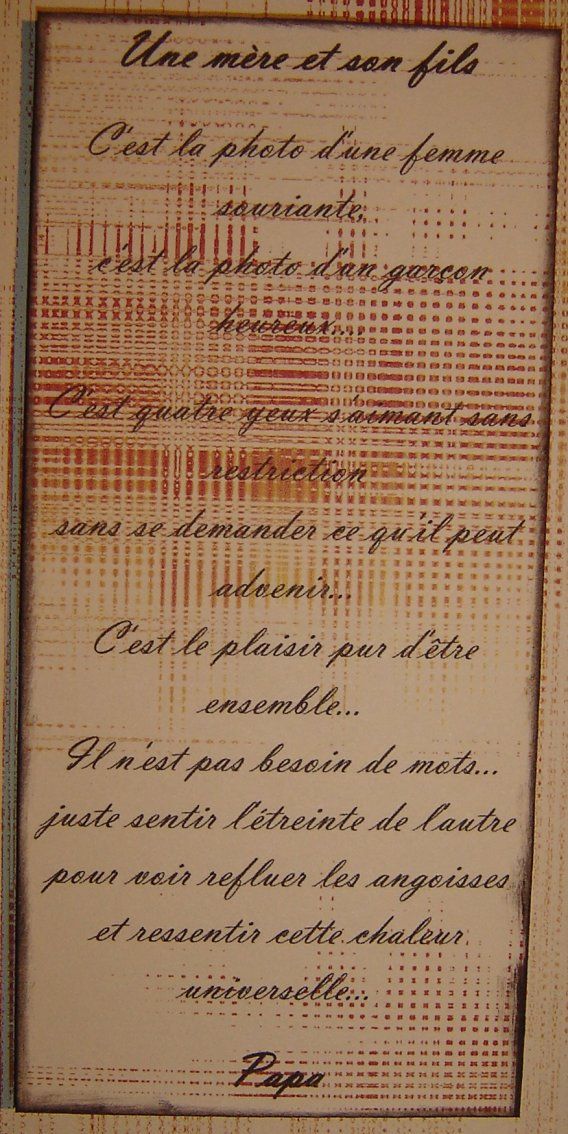 Une mère et son fils
C'est la photo d'une femme
souriante,
c'est la photo d'un garçon
heureux....
C'est quatre yeux s'aimant sans
restriction
sans se demander ce qu'il peut
advenir...
C'est le plaisir pur d'être
ensemble...
Il n'est pas besoin de mots...
juste sentir l'étreinte de l'autre
pour voir refluer les angoisses
et ressentir cette chaleur
universelle...
Papa